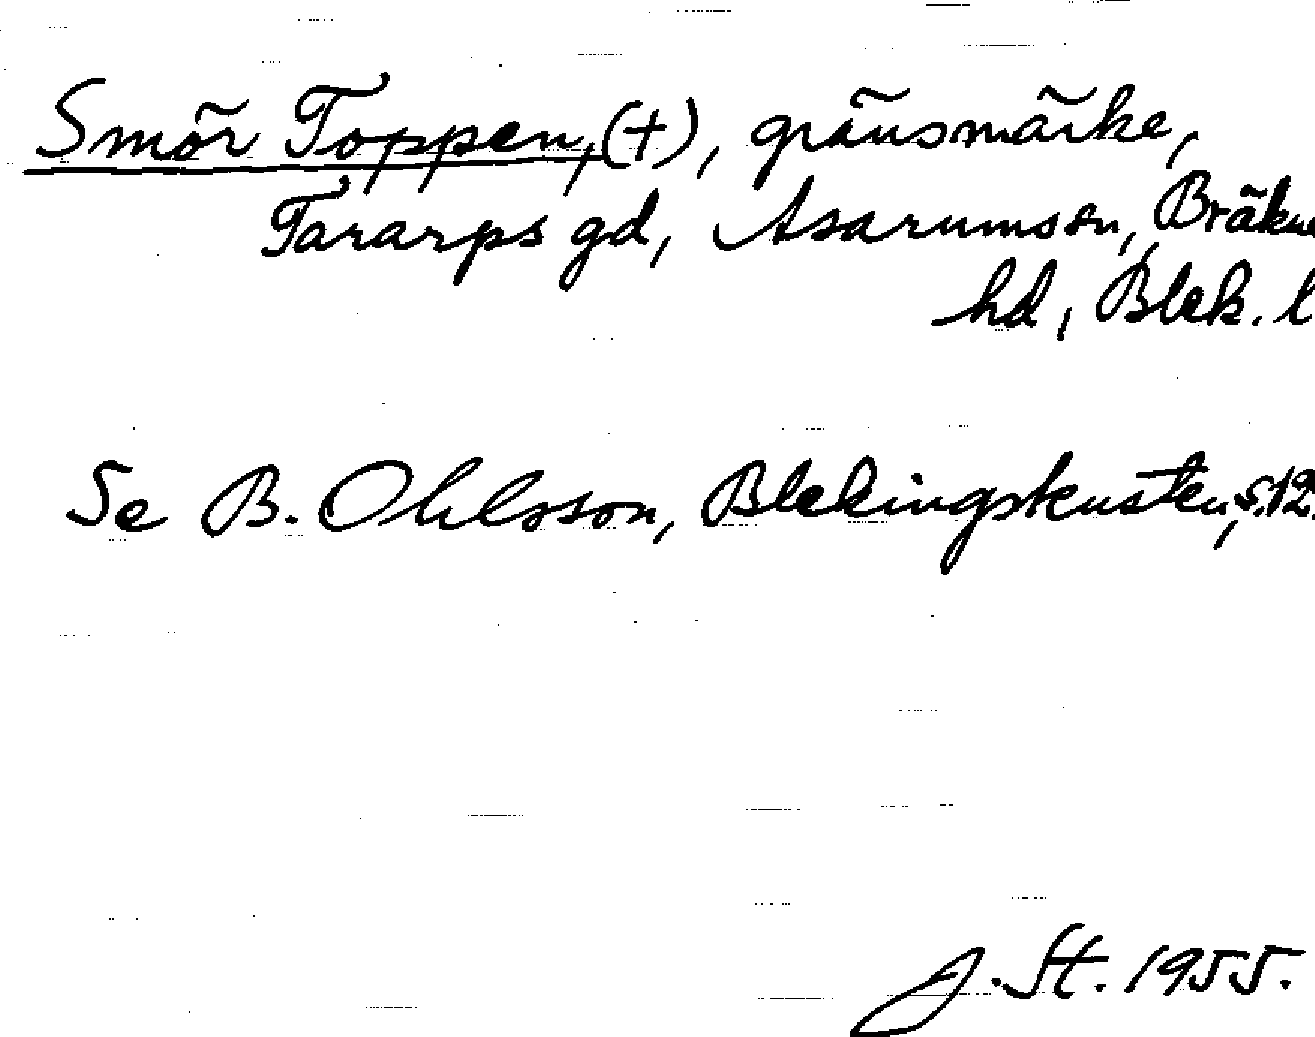 Smör Toppen, (+), gränsmärke,
Tararps gd, Asarumssn, Bräkne
hd, Blek. l
Se B. Ohlsson, Blekingskusten, s. 12.
J. St. 1955.